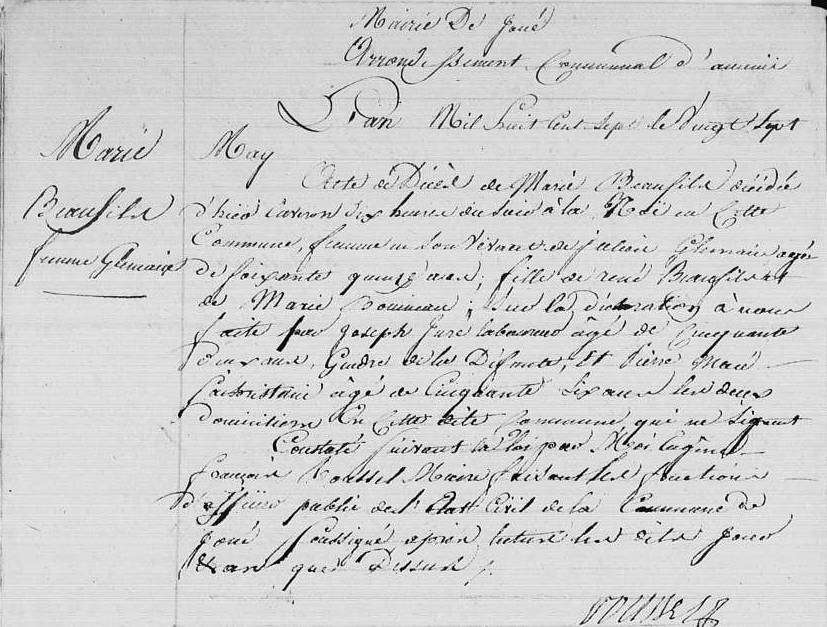 Mairie De Joué
Arrondissement Communal d'
L'an Mil huit cent sept le Vingt Sept
Marie
May
Acte de Décès de Marie Beaufils décédée
Beaufils
d'hier environ six heures du soir à la en Cette
femme
Commune, femme en son vivant de julien agée
de soixante quinze ans, fille de rené Beaufils et
de Marie ; sur la déclaration à nous
faite par joseph âgé de cinquante
deux ans, Gendre de la Défunte, Et Pierre
âgé de Cinquante six ans les deux
En Cette dite Commune qui ne signent
Constaté suivant la loi par Moi Eugène
françois Maire faisant les fonctions
d'officier public de l'état Civil de la Commune de
Joué Soussigné après lecture les dits jour
et an que Dessus